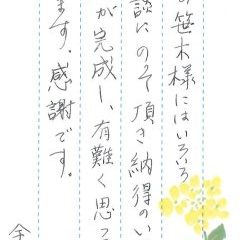 の笹木様にはいろいろ
談にのって頂き納得のい
が完成し、有難く思って
ます。感謝です。